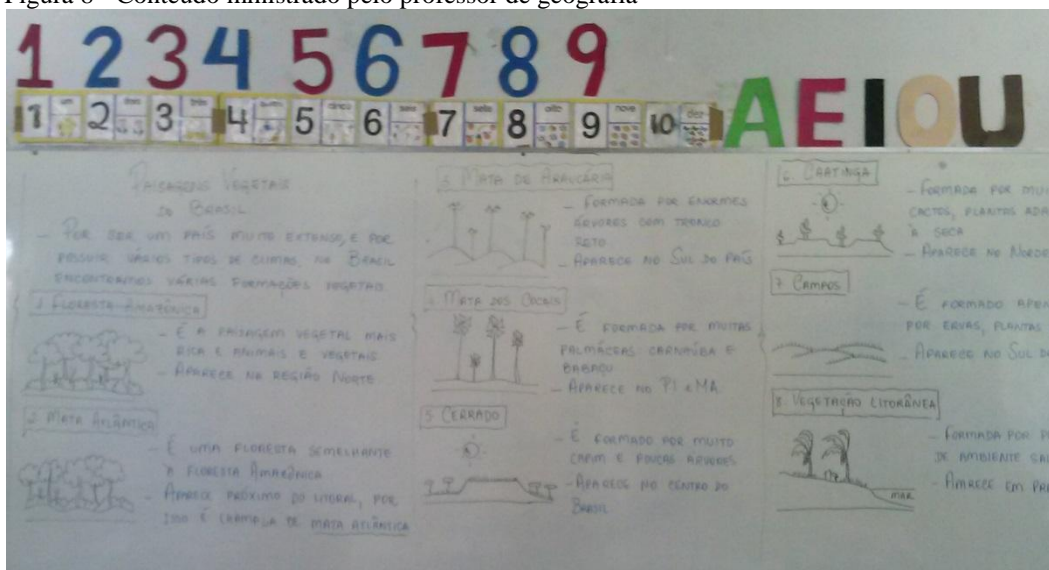 Figura 8 - Conteúdo ministrado pelo professor de geografia
1 2 3 4 5 6 7 8 9
1 2 3 4 5 6 7 8 9 10
um dois três quatro cinco seis sete oito nove dez
A E I O U
PAISAGENS VEGETAIS
DO BRASIL
- POR SER UM PAÍS MUITO EXTENSO, E POR
POSSUIR VÁRIOS TIPOS DE CLIMAS, NO BRASIL
ENCONTRAMOS VÁRIAS FORMAÇÕES VEGETAIS
1. FLORESTA AMAZÔNICA
- É A PAISAGEM VEGETAL MAIS
RICA E ANIMAIS E VEGETAIS
- APARECE NA REGIÃO NORTE
2. MATA ATLÂNTICA
- É UMA FLORESTA SEMELHANTE
À FLORESTA AMAZÔNICA
- APARECE PRÓXIMO DO LITORAL, POR
ISSO É CHAMADA DE MATA ATLÂNTICA
3. MATA DE ARAUCÁRIA
- FORMADA POR ENORMES
ÁRVORES COM TRONCO
RETO
- APARECE NO SUL DO PAÍS
4. MATA DOS COCAIS
- É FORMADA POR MUITAS
PALMÁCEAS: CARNAÚBA E
BABAÇU
- APARECE NO PI E MA
5. CERRADO
- É FORMADO POR MUITO
CAPIM E POUCAS ÁRVORES
- APARECE NO CENTRO DO
BRASIL
6. CAATINGA
- FORMADA POR MUI
CACTOS, PLANTAS ADA
À SECA
- APARECE NO NORDE
7. CAMPOS
- É FORMADO APEN
POR ERVAS, PLANTAS
- APARECE NO SUL DO
8. VEGETAÇÃO LITORÂNEA
- FORMADA POR
DE AMBIENTE SAL
- APARECE EM PRA
MAR